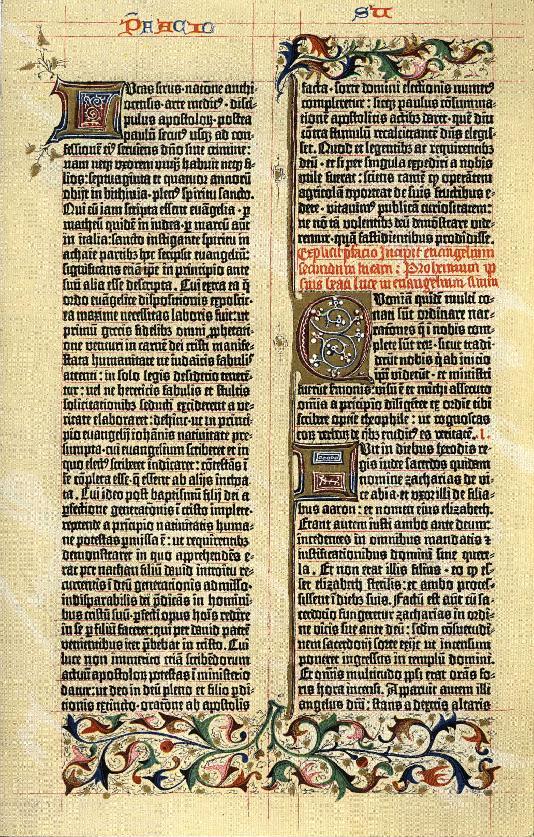 PRACIO
SU
Lucas sirus · natione anthi-
ocensis · arte medicus · disci-
pulus apostolorum · postea
paulū secut⁹ usqꝫ ad con-
fessionē ei⁹ serviens dño sine crimine:
nam neqꝫ uxorem unqͣ habuit neqꝫ fi-
lios: septuaginta et quatuor annorū
obijt in bithinia · plen⁹ spiritu sancto.
Qui cū iam scripta essent euāgelia · p
matheū quidē in iudea · p marcū autē
in italia: sancto instigante spiritu in
achaie partibꝫ hoc scripsit euangeliū:
significans etiā ipē in principio ante
suū alia esse descripta. Cui extra ea q̄
ordo euāgelice dispositionis exposcit
ea maxime necessitas laboris fuit: ut
primū grecis fidelibꝫ omni prophetati-
one venturi in carnē dei cristi manife-
stata humanitate ne iudaicis fabulis
attenti: in solo legis desiderio teneren-
tur: vel ne hereticis fabulis et stultis
solicitationibꝫ seducti exciderent a ve-
ritate elaboraret: dehinc ut in princi-
pio euangelij iohānis nativitate pre-
sumpta · cui euangelium scriberet et in
quo elect⁹ scriberet indicaret: cōtestās ī
se cōpleta esse · q̄ essent ab alijs incho-
ata. Cui ideo post baptismū filij dei a
pfectione generationis ī cristo implete ·
repetende a principio nativitatis huma-
ne potestas pmissa ē: ut requirentibꝫ
demonstraret in quo apprehendēs e-
rat per nathan filiū david introitu re-
currentis ī deū generationis admisso ·
indisparabilis dei pdicās in homini-
bus cristū suū · pfecti opus hoīs redire
in se p filiū faceret: qui per david patrē
venientibus iter pbebat in cristo. Cui
luce non immerito etiā scribendorum
actuū apostolorum potestas ī ministerio
datur: ut deo in deū pleno et filio pdi-
tionis extincto · oratione ab apostolis
facta · sorte domini electionis numer⁹
compleretur: sicqꝫ paulus cōsumma-
tionē apostolicis actibꝫ daret · quē diu
cōtra stimulū recalcitrantē dñs elegis-
set. Quod et legentibꝫ ac requirentibꝫ
deū · et si per singula expediri a nobis
utile fuerat: sciens tamē qꝫ operantem
agricolā oporteat de suis fructibus e-
dere · vitavim⁹ publicā curiositatem:
ne nō tā volentibꝫ deū demonstrare vide-
remur · quā fastidientibus prodidisse.
Explicit pfacio Incipit euangelium
secundum lucam: Prohemium ip-
sius beati luce in euangelium suum
Quoniā quidē multi co-
nati sūt ordinare nar-
rationes q̄ ī nobis com-
plete sūt rerū · sicut tradi-
derūt nobis q̄ ab inicio
ipī viderūt · et ministri
fuerūt sermonis: visū ē et michi assecuto
omnia a pricipio diligēter ex ordīe tibi
scribere optīe theophile: ut cognoscas
eorū verborū de qꝫbꝫ erudit⁹ es veritatē. .I.
Fuit in diebus herodis re-
gis iude sacerdos quidam
nomine zacharias de vi-
ce abia · et uxor illi de filia-
bus aaron: et nomen eius elizabeth.
Erant autem iusti ambo ante deum:
incedentes in omnibus mandatis et
iustificationibus domini sine quere-
la. Et non erat illis filius · eo qꝫ es-
set elizabeth sterilis: et ambo proces-
sissent ī diebꝫ suis. Factū est autē cū sa-
cerdotio fungeretur zacharias in ordi-
ne vicis sue ante deū: scdm consuetudi-
nem sacerdotij sorte exijt ut incensum
poneret ingressus in templū domini.
Et omnis multitudo ppli erat orās fo-
ris hora incensi. Apparuit autem illi
angelus dñi: stans a dextris altaris